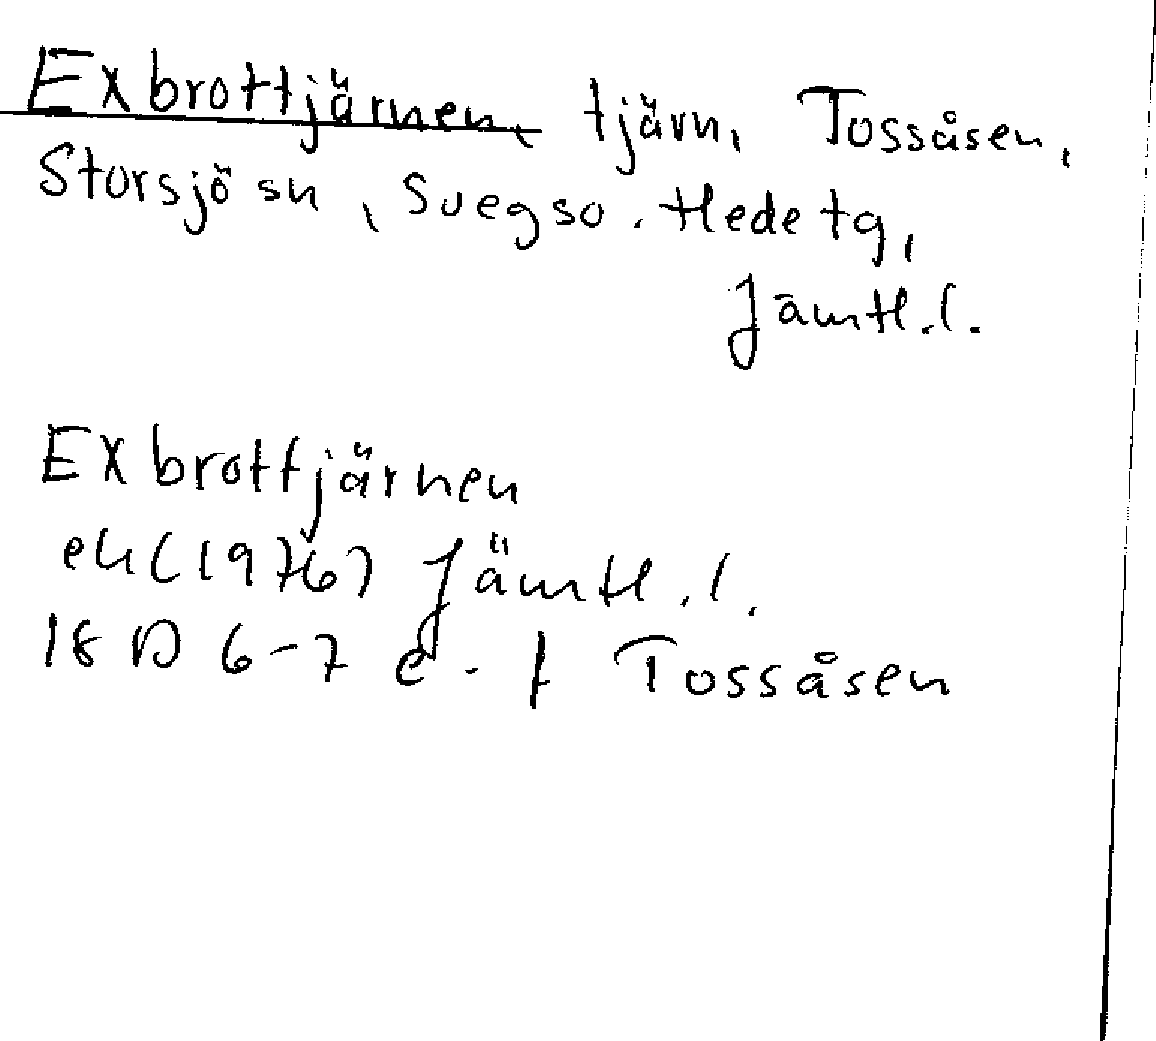 Exbrottjärnen, tjärn, Tossåsen,
Storsjö sn, Svegs o. Hede tg,
Jämtl. l.
Exbrottjärnen
ek (1976) Jämtl. l.
18 D 6-7 e-f Tossåsen